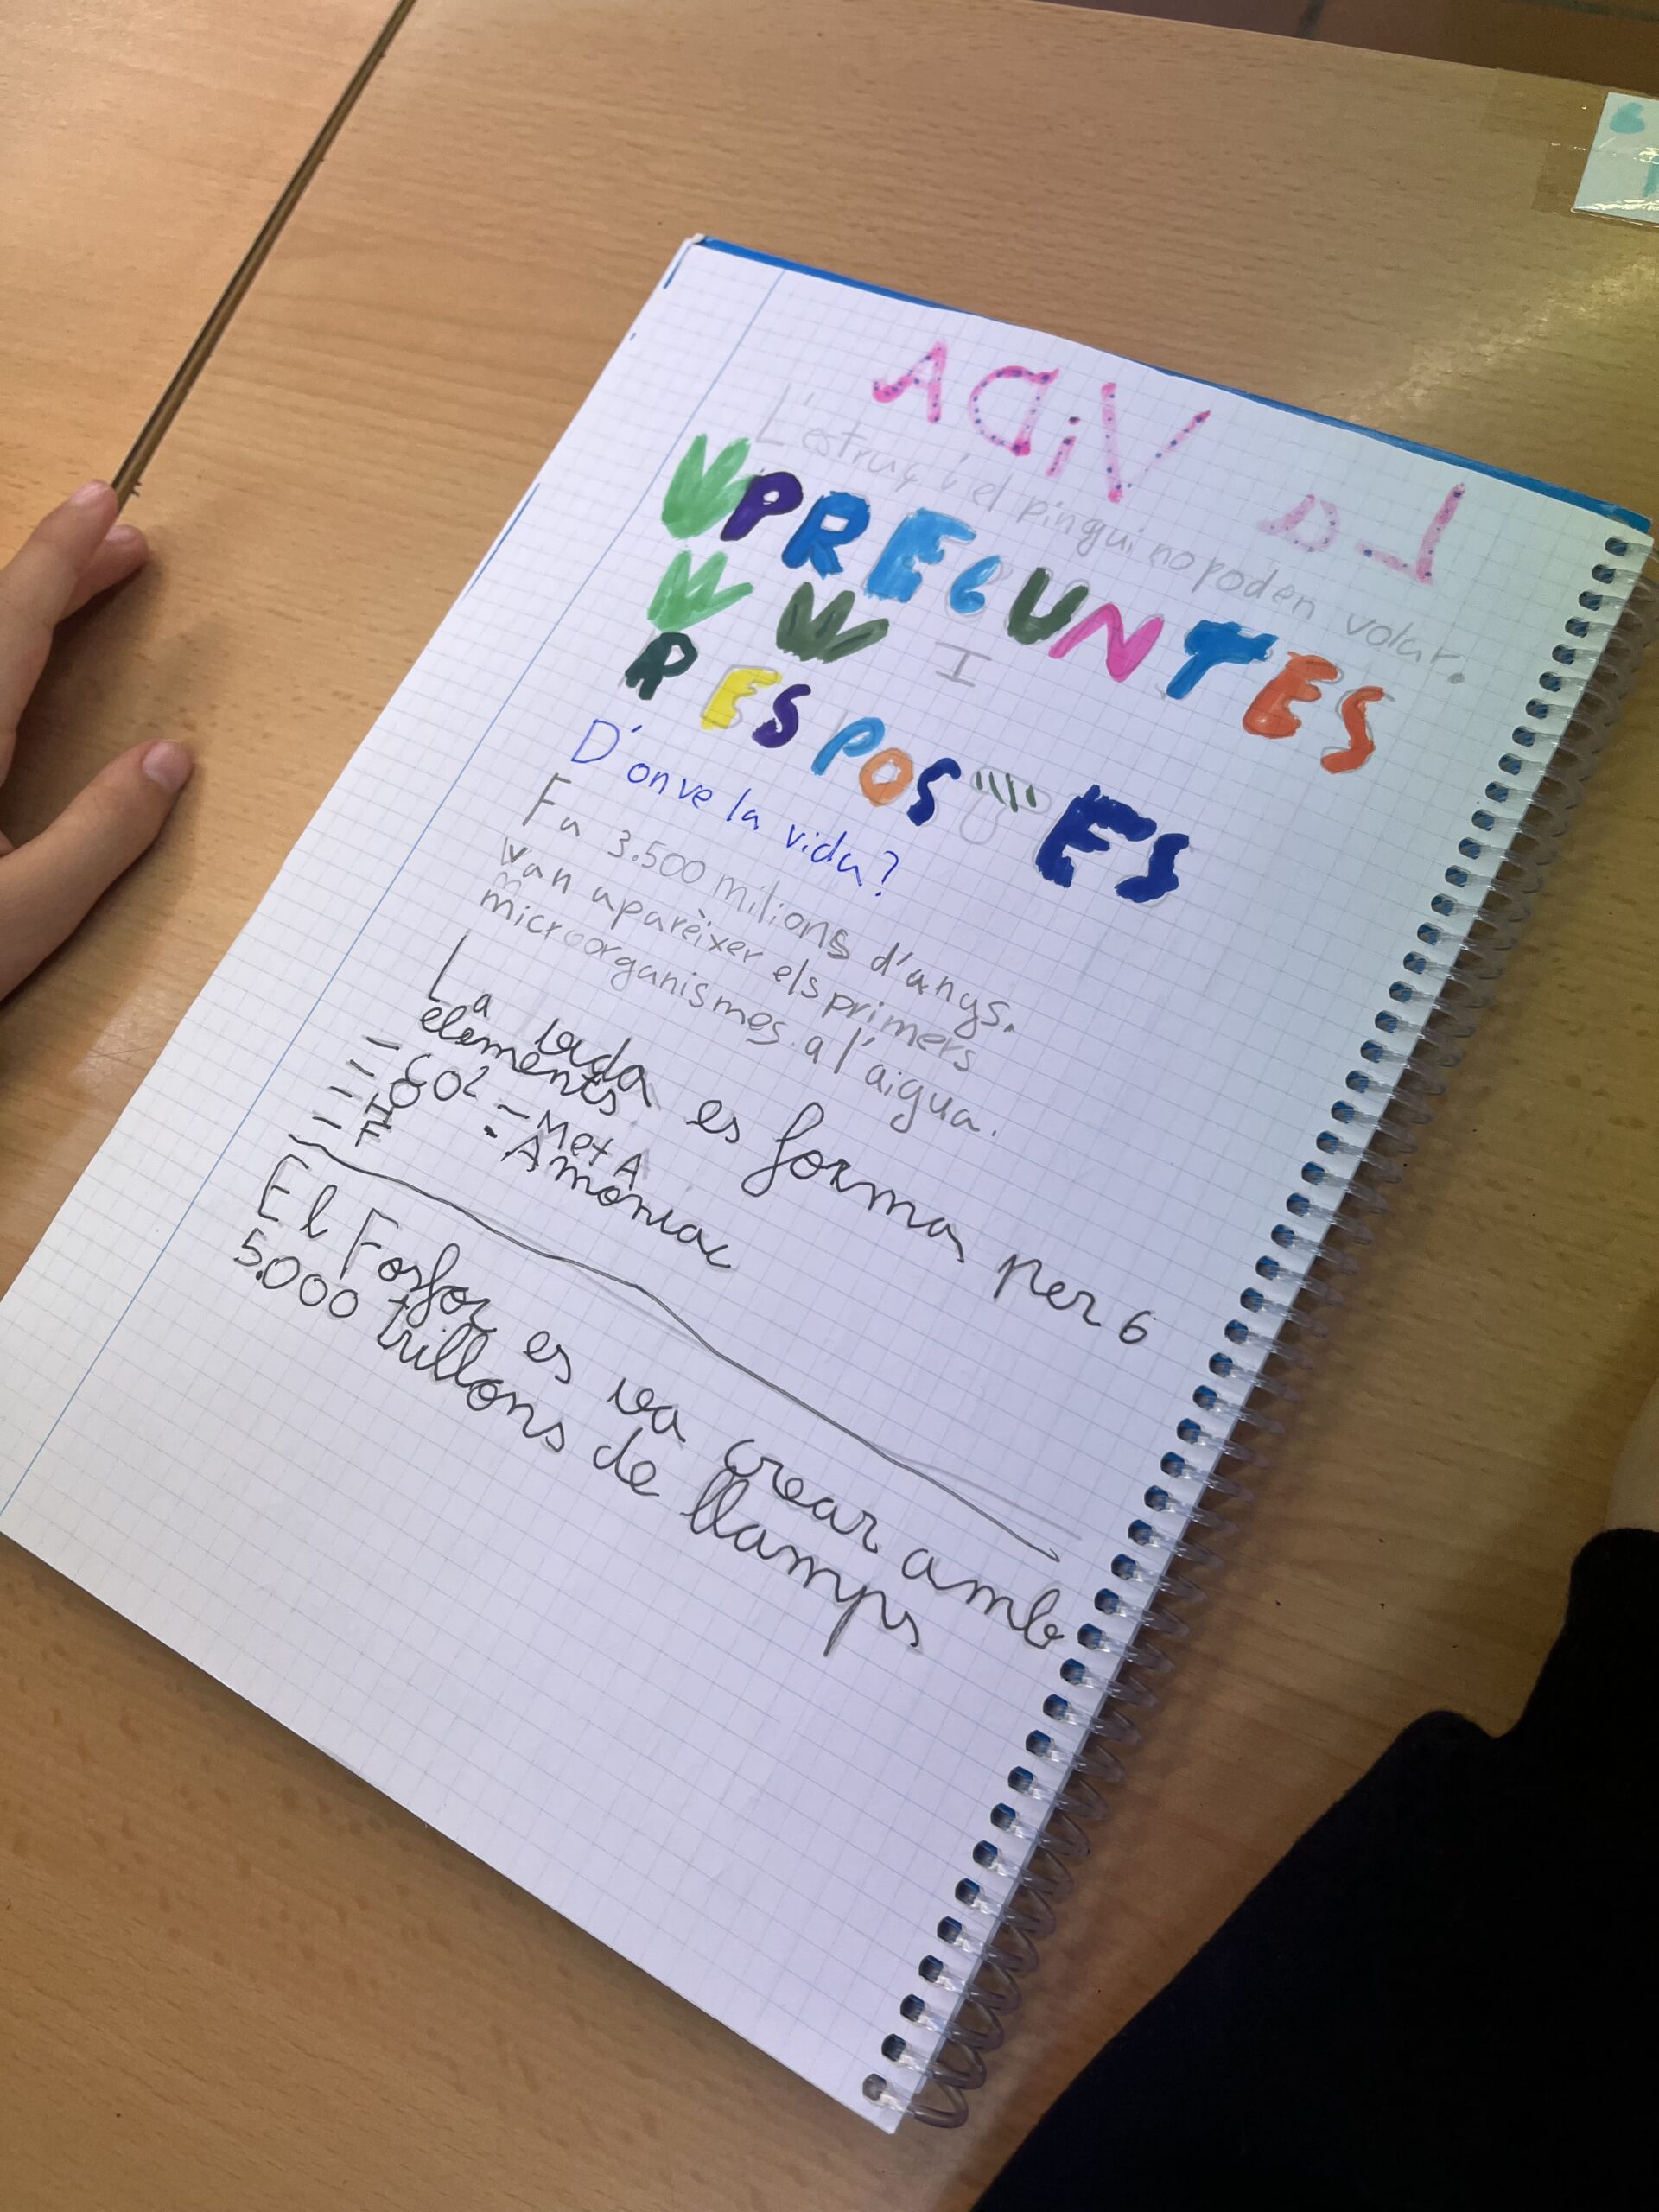 La ViDA
L'estruç i el pingui no poden volar.
PREGUNTES
I
RESPOSTES
D'on ve la vida?
Fa 3.500 milions d'anys.
van aparèixer els primers
microorganismes a l'aigua.
La vida es forma per 6
elements
- CO2 - Met A
- O - Amoniac
- H
- F
El Fosfor es va crear amb
5.000 trillons de llamps